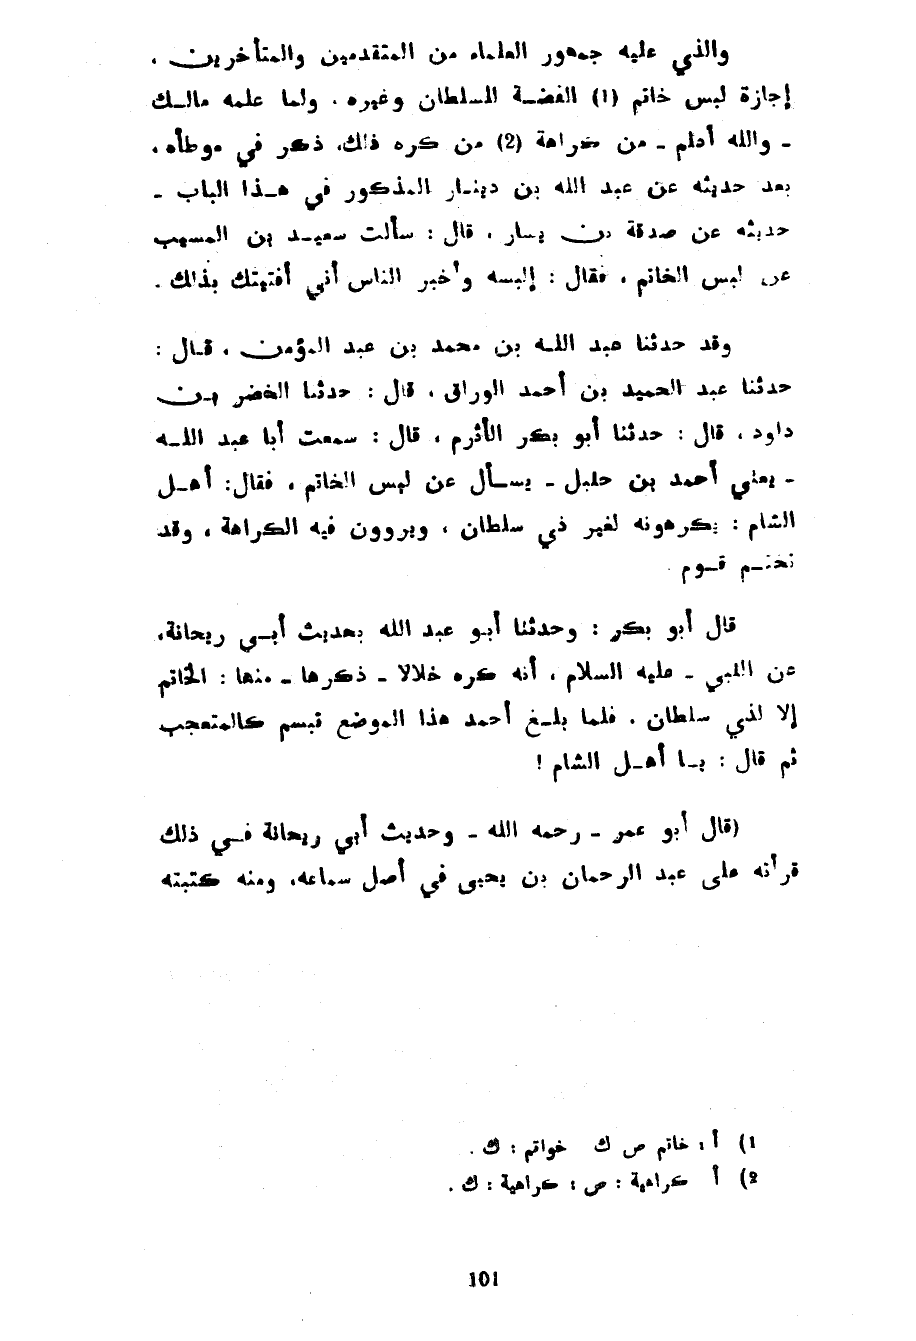 والذي عليه جمهور العلماء من المتقدمين والمتأخرين ،
إجازة لبس خاتم (1) الفضـة للسلطان وغيره . ولما علمه مالـك
ـ والله أعلم ـ من كراهة (2) من كره ذلك، ذكر في موطأه،
بعد حديثه عن عبد الله بن دينـار المذكور في هـذا الباب ـ
حديثه عن صدقة بن يسار ، قال : سألت سعيـد بن المسيب
عن لبس الخاتم ، فقال : إلبسه وأخبر الناس أني أفتيتك بذلك .
وقد حدثنا عبد اللـه بن محمد بن عبد المؤمن ، قـال :
حدثنا عبد الحميد بن أحمد الوراق ، قال : حدثنا الخضر بـن
داود ، قال : حدثنا أبو بكر الأثرم ، قال : سمعت أبا عبد اللـه
ـ يعني أحمد بن حنبل ـ يسـأل عن لبس الخاتم ، فقال: أهـل
الشام : يكرهونه لغير ذي سلطان ، ويروون فيه الكراهة ، وقد
تختـم قـوم .
قال أبو بكر : وحدثنا أبـو عبد الله بحديث أبـي ريحانة،
عن النبي ـ عليه السلام ، أنه كره خلالا ـ ذكرها ـ منها : الخاتم
إلا لذي سلطان . فلما بلـغ أحمد هذا الموضع تبسم كالمتعجب
ثم قال : يـا أهـل الشام !
(قال أبو عمر ـ رحمه الله ـ وحديث أبي ريحانة فـي ذلك
قرأته على عبد الرحمان بن يحيى في أصل سماعه، ومنه كتبته
1) أ : خاتم ص ك خواتم : ك .
2) أ كراهية : ص : كراهية : ك .
101